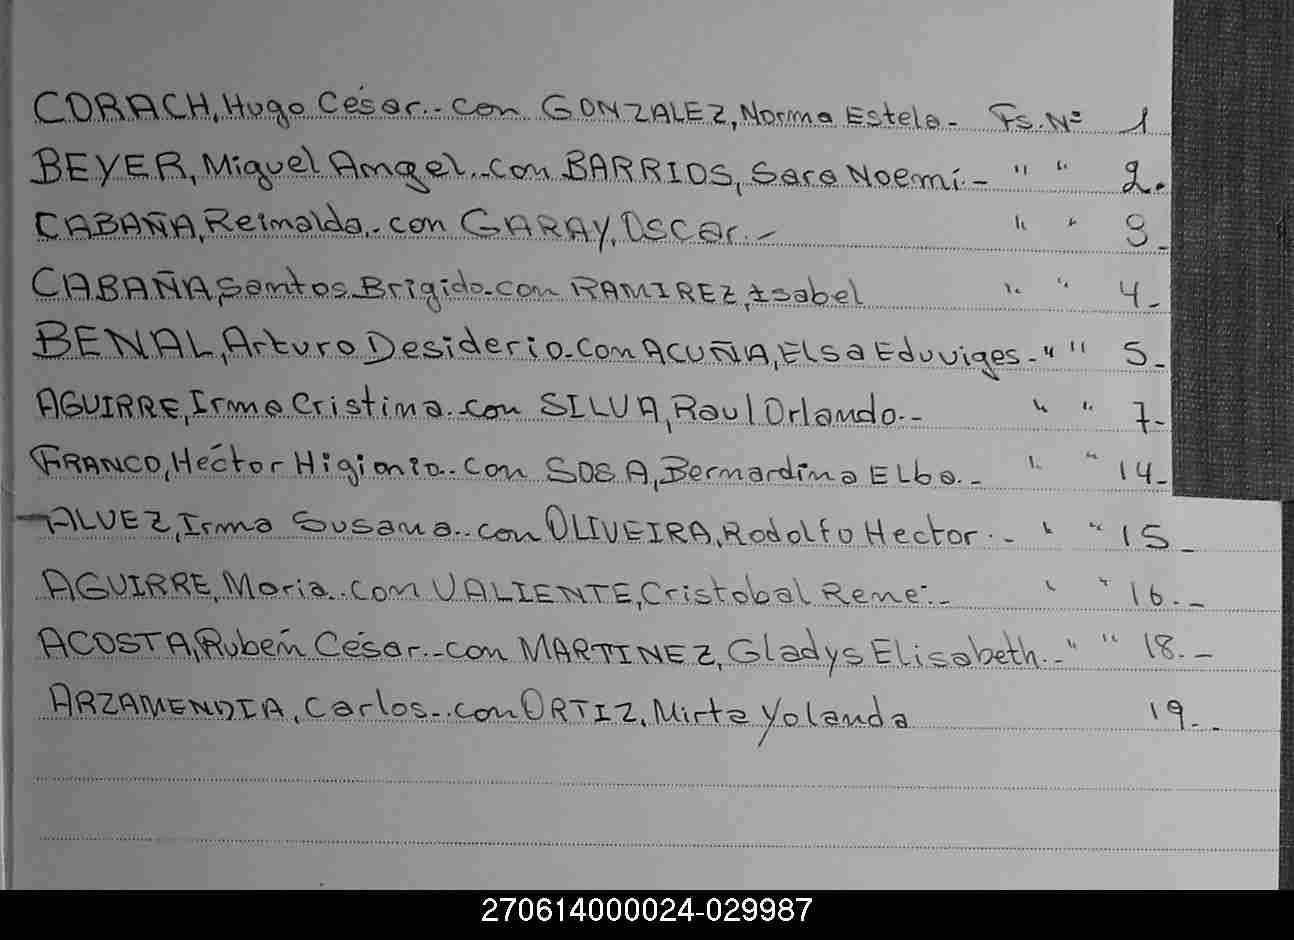 CORACH, Hugo César.-con GONZALEZ, Norma Estela- Fs.Nº 1
BEYER, Miguel Angel.-con BARRIOS, Sara Noemí.- " " 2.
CABAÑA, Reinaldo.-con GARAY, Oscar.- " " 3-
CABAÑA, Santos Brigido.con RAMIREZ, Isabel " " 4-
BENAL, Arturo Desiderio.con ACUÑA, Elsa Eduviges-" " 5-
AGUIRRE, Irma Cristina.-con SILVA, Raul Orlando.- " " 7-
FRANCO, Héctor Higionio.-con SOSA, Bernardina Elba.- " " 14-
ALVEZ, Irma Susana.-con OLIVEIRA, Rodolfo Hector.- " " 15-
AGUIRRE, Maria.-con VALIENTE, Cristobal Rene.- " " 16.-
ACOSTA, Rubén César.-con MARTINEZ, Gladys Elisabeth.-" " 18.-
ARZAMENDIA, Carlos.-con ORTIZ, Mirta Yolanda 19.-
270614000024-029987